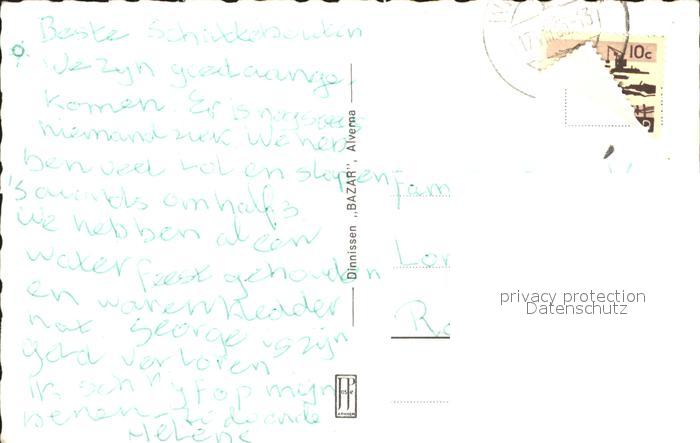 Beste Schattebouten
We zijn goed aange-
komen. Er is nog
niemand ziek We heb
ben veel lol en slapen
's avonds om half 3
We hebben al een
water feest gehouden
en waren kledder
nat George is zijn
geld verloren
Ik schrijf op mijn
benen
Helene
Dinnissen „BAZAR”, Alverna
10c
Fam
privacy protection
Datenschutz